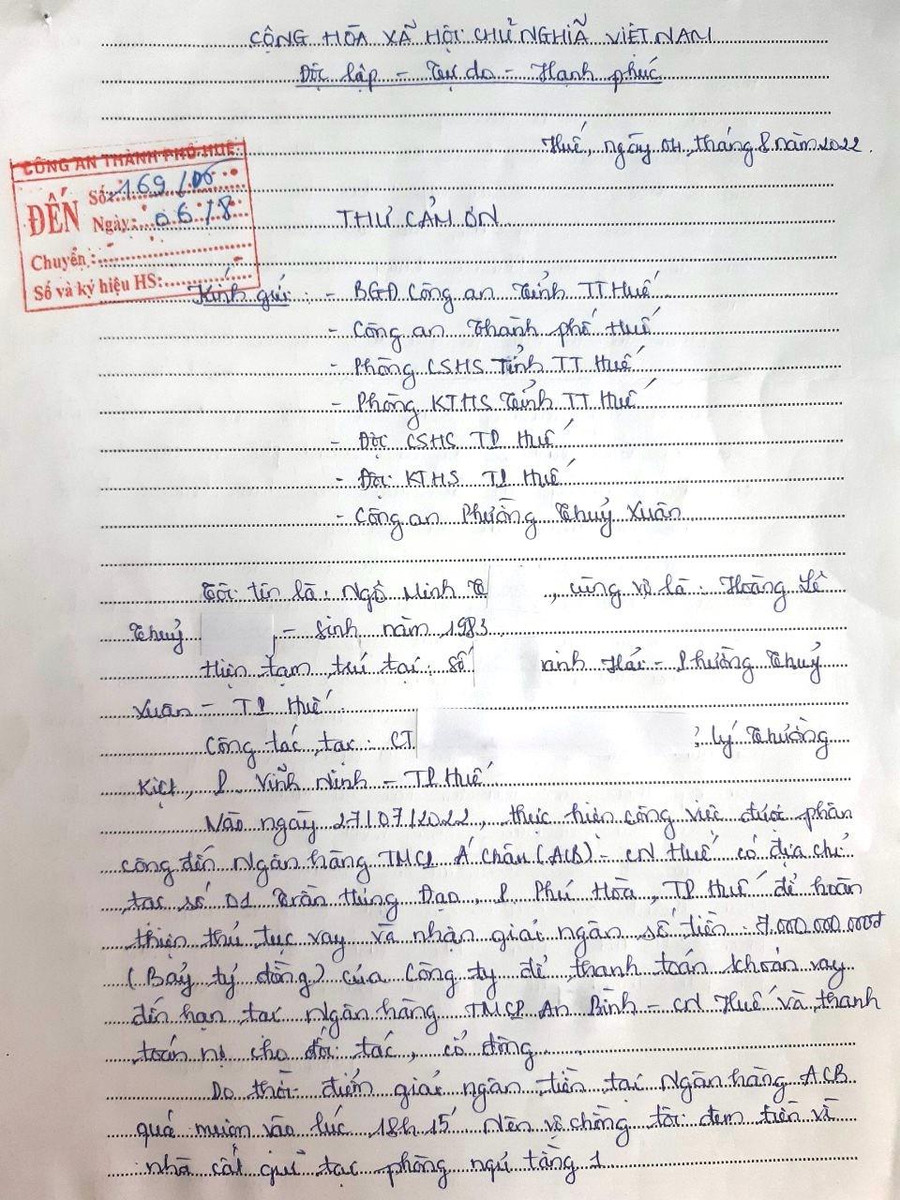 CỘNG HÒA XÃ HỘI CHỦ NGHĨA VIỆT NAM
Độc lập - Tự do - Hạnh phúc
Huế, ngày 04, tháng 8 năm 2022.
CÔNG AN THÀNH PHỐ HUẾ
ĐẾN
Số: 169/06
Ngày: 06/8
Chuyển:
Số và ký hiệu HS:
THƯ CẢM ƠN
Kính gửi: - BGĐ Công an Tỉnh TT Huế
- Công an Thành phố Huế
- Phòng CSHS Tỉnh TT Huế
- Phòng KTHS Tỉnh TT Huế
- Đội CSHS TP Huế
- Đội KTHS TP Huế
- Công an Phường Thuỷ Xuân
Tôi tên là: Ngô Minh T , cùng vợ là: Hoàng Lê
Thuỷ - sinh năm 1983.
Hiện tạm trú tại: Số Hải - Phường Thuỷ
Xuân - TP Huế.
Công tác tại: CT : Lý Thường
Kiệt, P Vĩnh Ninh - TP Huế
Vào ngày 27/07/2022, thực hiện công việc được phân
công đến Ngân hàng TMCP Á Châu (ACB) - CN Huế có địa chỉ
tại số 01 Trần Hưng Đạo, P Phú Hòa, TP Huế để hoàn
thiện thủ tục vay và nhận giải ngân số tiền: 7.000.000.000đ
(Bảy tỷ đồng) của Công ty để thanh toán khoản vay
đến hạn tại Ngân hàng TMCP An Bình - CN Huế và thanh
toán nợ cho đối tác, cổ đông.
Do thời điểm giải ngân tiền tại Ngân hàng ACB
quá muộn vào lúc 18h 15' Nên vợ chồng tôi đem tiền về
nhà cất giữ tại phòng ngủ tầng 1